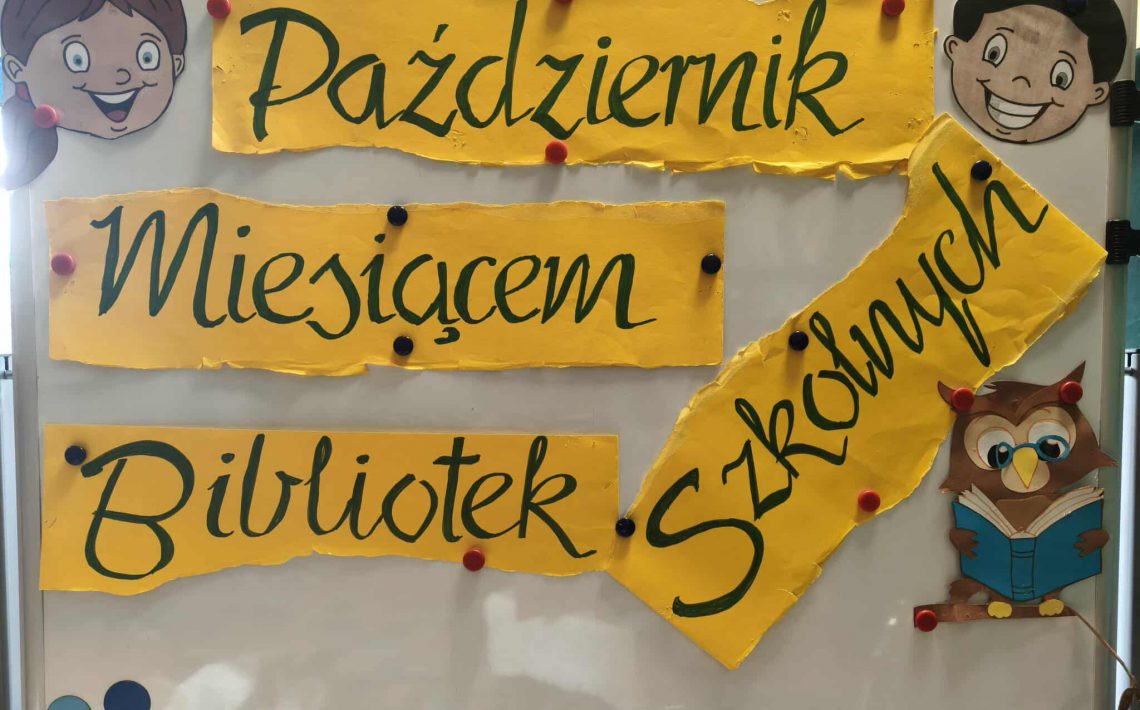 Październik
Miesiącem
Bibliotek
Szkolnych